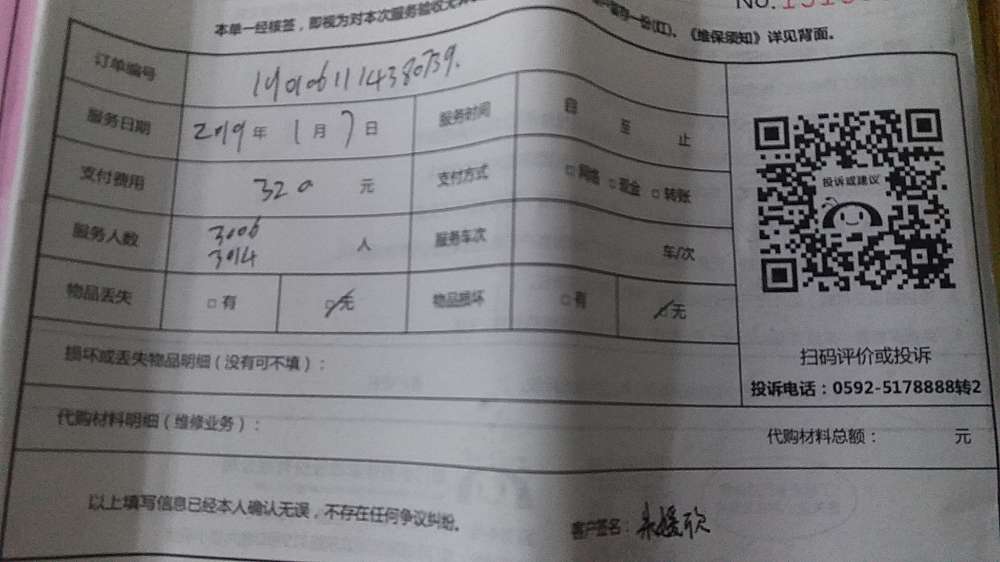 本单一经核签，即视为对本次服务验收无
一份(红)。《维保须知》详见背面。
No.
订单编号
服务日期 2019年 1月7日 服务时间 自 至 止
支付费用 320 元 支付方式 □网络 □现金 □转账
服务人数 3006 3014 人 服务车次 车/次
物品丢失 □有 □无 物品损坏 □有 □无
投诉或建议
扫码评价或投诉
投诉电话：0592-5178888转2
损坏或丢失物品明细（没有可不填）：
代购材料明细（维修业务）：
代购材料总额： 元
以上填写信息已经本人确认无误，不存在任何争议纠纷。
客户签名：